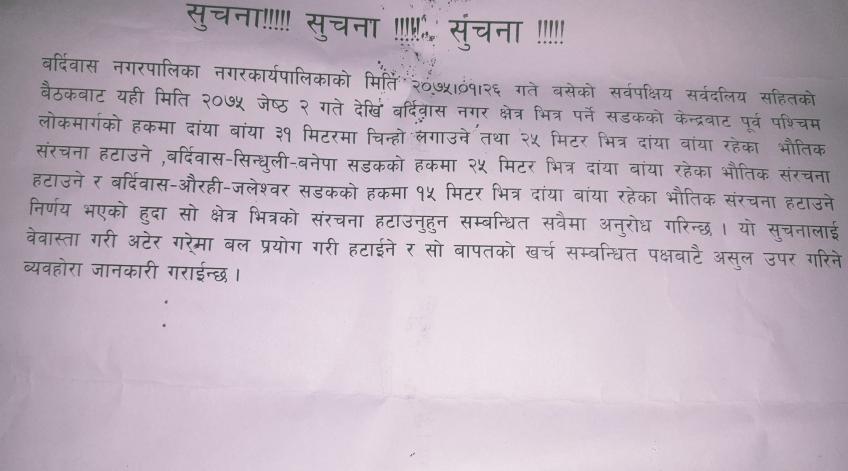 सुचना!!!!! सुचना !!!!! सुचना !!!!!
बर्दिवास नगरपालिका नगरकार्यपालिकाको मिति २०७५।०१।२६ गते बसेको सर्वपक्षिय सर्वदलिय सहितको
बैठकबाट यही मिति २०७५ जेष्ठ २ गते देखि बर्दिवास नगर क्षेत्र भित्र पर्ने सडकको केन्द्रबाट पूर्व पश्चिम
लोकमार्गको हकमा दांया बांया ३१ मिटरमा चिन्हो लगाउने तथा २५ मिटर भित्र दांया बांया रहेका भौतिक
संरचना हटाउने ,बर्दिवास-सिन्धुली-बनेपा सडकको हकमा २५ मिटर भित्र दांया बांया रहेका भौतिक संरचना
हटाउने र बर्दिवास-औरही-जलेश्वर सडकको हकमा १५ मिटर भित्र दांया बांया रहेका भौतिक संरचना हटाउने
निर्णय भएको हुदा सो क्षेत्र भित्रको संरचना हटाउनुहुन सम्बन्धित सवैमा अनुरोध गरिन्छ । यो सुचनालाई
वेवास्ता गरी अटेर गरेमा बल प्रयोग गरी हटाईने र सो बापतको खर्च सम्बन्धित पक्षबाटै असुल उपर गरिने
ब्यवहोरा जानकारी गराईन्छ ।